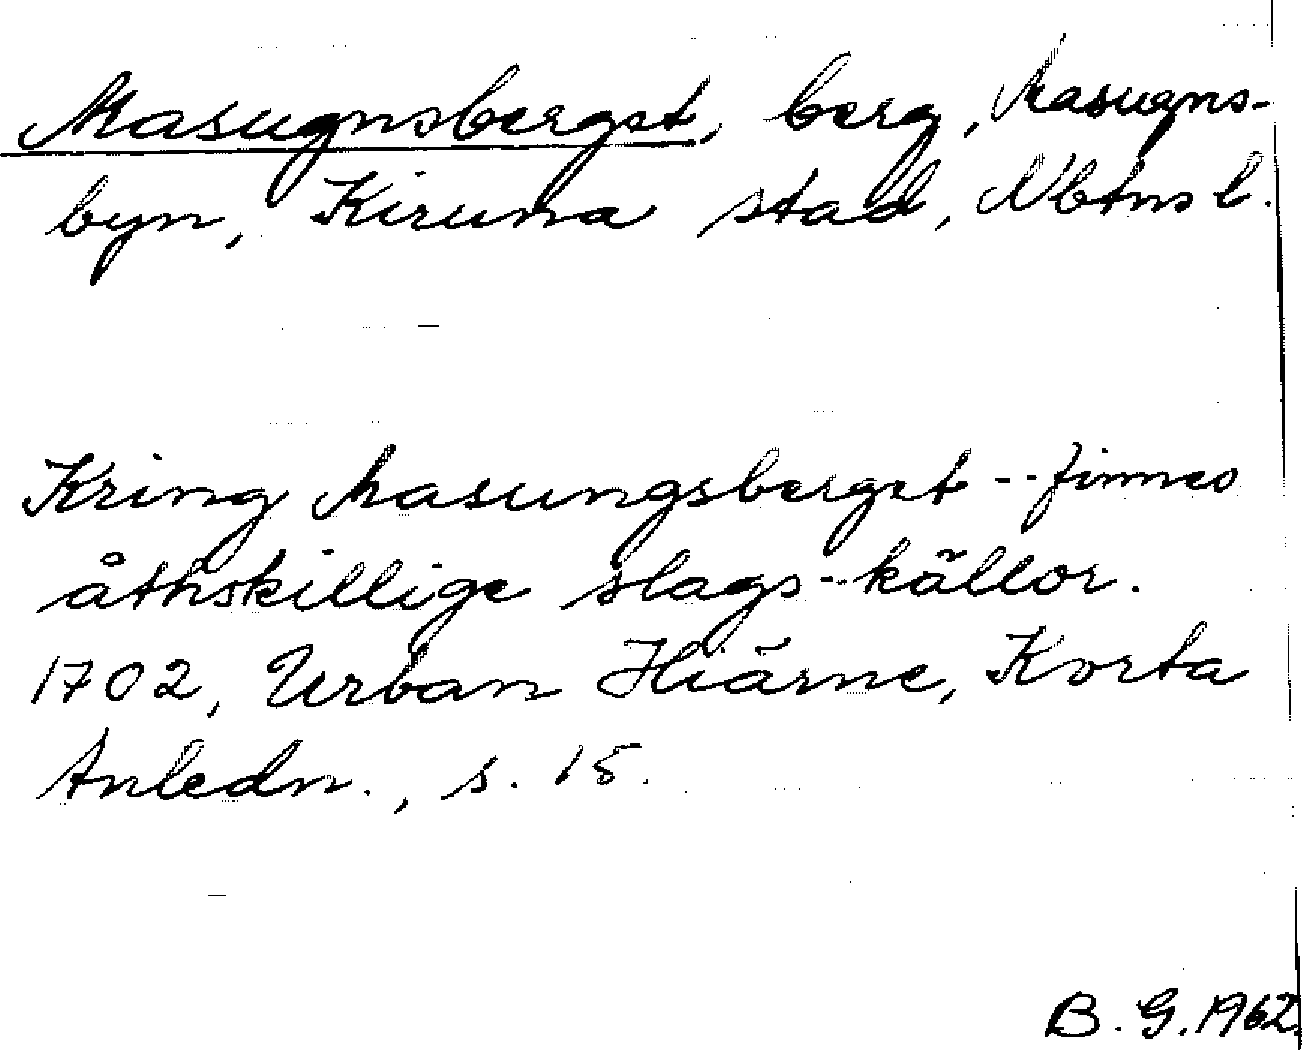 Masugnsberget, berg, Masugns-
byn, Kiruna stad, Nbtns l.
Kring Masungsberget -- finnes
åthskillige slags -- källor.
1702, Urban Hiärne, Korta
Anledn., s. 15.
B. G. 1962.